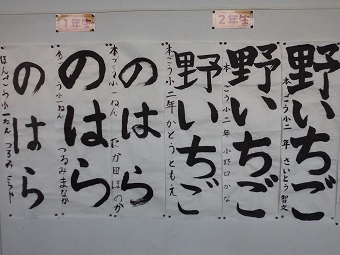 2年生
野いちご
本ごう小二年 さいとう 智之
野いちご
本ごう小二年 小野口かな
野いちご
本ごう小二年 かとうともえ
1年生
のはら
本ごう小一ねん
のはら
本ごう小一ねん つるみまなか
のはら
ほんごう小一ねん